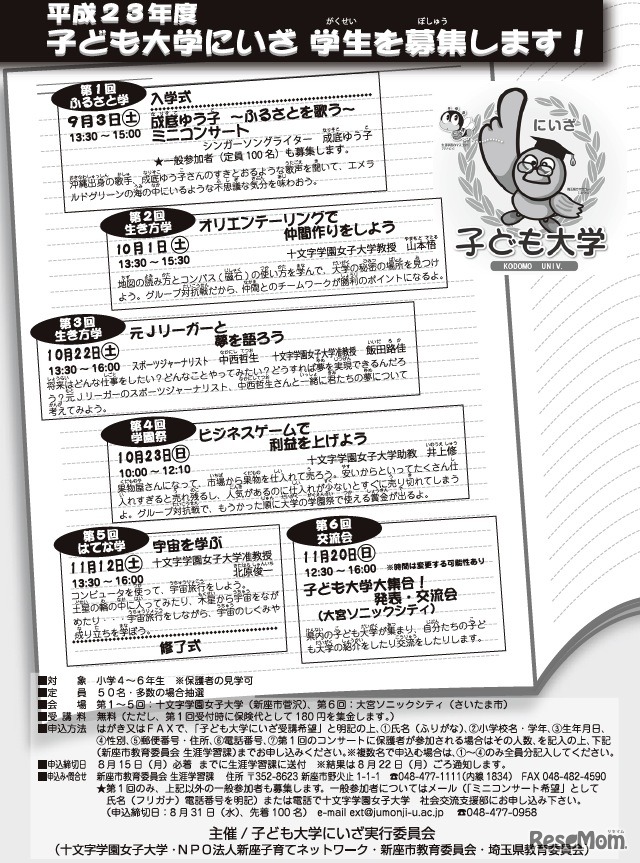 平成２３年度
子ども大学にいざ 学生を募集します！
がくせい ぼしゅう
第１回
ふるさと学
9月3日(土)
13:30 ～ 15:00
入学式
成底ゆう子 ～ふるさとを歌う～
ミニコンサート
シンガーソングライター 成底ゆう子
★一般参加者（定員100名）も募集します。
沖縄出身の歌手、成底ゆう子さんのすきとおるような歌声を聞いて、エメラ
ルドグリーンの海の中にいるような不思議な気分を味わおう。
にいざ
子ども大学
KODOMO UNIV.
第２回
生き方学
10月1日(土)
13:30 ～ 15:30
オリエンテーリングで
仲間作りをしよう
十文字学園女子大学教授 山本悟
地図の読み方とコンパス（磁石）の使い方を学んで、大学の秘密の場所を見つけ
よう。グループ対抗戦だから、仲間とのチームワークが勝利のポイントになるよ。
第３回
生き方学
10月22日(土)
13:30 ～ 16:00
元Ｊリーガーと
夢を語ろう
スポーツジャーナリスト 中西哲生 十文字学園女子大学准教授 飯田路佳
将来はどんな仕事をしたい？どんなことやってみたい？どうすれば夢を実現できるんだろ
う？元Ｊリーガーのスポーツジャーナリスト、中西哲生さんと一緒に君たちの夢について
考えてみよう。
第４回
学園祭
10月23日(日)
10:00 ～ 12:10
ビジネスゲームで
利益を上げよう
十文字学園女子大学助教 井上修
果物屋さんになって、市場から果物を仕入れて売ろう。安いからといってたくさん仕
入れすぎると売れ残るし、人気があるのに仕入れが少ないとすぐに売り切れてしまう
よ。グループ対抗で、もうかった順に大学の学園祭で使える賞金が出るよ。
第５回
はてな学
11月12日(土)
13:30 ～ 16:00
宇宙を学ぶ
十文字学園女子大学准教授
北原俊一
コンピュータを使って、宇宙旅行をしよう。
土星の輪の中に入ってみたり、木星から宇宙をなが
めたり・・・宇宙旅行をしながら、宇宙のしくみや
成り立ちを学ぼう。
修了式
第６回
交流会
11月20日(日)
12:30 ～ 16:00 ※時間は変更する可能性あり
子ども大学大集合！
発表・交流会
（大宮ソニックシティ）
県内の子ども大学が集まり、自分たちの子ど
も大学の紹介をしたり交流をしたりします。
■対　　象 小学４～６年生 ※保護者の見学可
■定　　員 ５０名・多数の場合抽選
■会　　場 第１～５回：十文字学園女子大学（新座市菅沢）、第６回：大宮ソニックシティ（さいたま市）
■受 講 料 無料（ただし、第１回受付時に保険代として180円を集金します。）
■申込方法 はがき又はＦＡＸで、「子ども大学にいざ受講希望」と明記の上、①氏名（ふりがな）、②小学校名・学年、③生年月日、
④性別、⑤郵便番号・住所、⑥電話番号、⑦第１回のコンサートに保護者が参加される場合はその人数、を記入の上、下記
（新座市教育委員会 生涯学習課）までお申し込みください。※複数名で申込む場合は、①～④のみ全員分記入してください。
■申込締切 ８月15日（月）必着 までに生涯学習課に送付 ※結果は８月22日（月）ごろ通知します。
■申込み問合せ 新座市教育委員会 生涯学習課 住所 〒352-8623 新座市野火止1-1-1 ☎048-477-1111(内線1834) FAX 048-482-4590
★第１回のみ、上記以外の一般参加者も募集します。一般参加者についてはメール（「ミニコンサート希望」として
氏名（フリガナ）電話番号を明記）または電話で十文字学園女子大学 社会交流支援部にお申し込み下さい。
（申込締切日：８月31日（水）、先着100名） e-mail ext@jumonji-u.ac.jp ☎048-477-0958
主催 / 子ども大学にいざ実行委員会
（十文字学園女子大学・ＮＰＯ法人新座子育てネットワーク・新座市教育委員会・埼玉県教育委員会）
ReseMom.